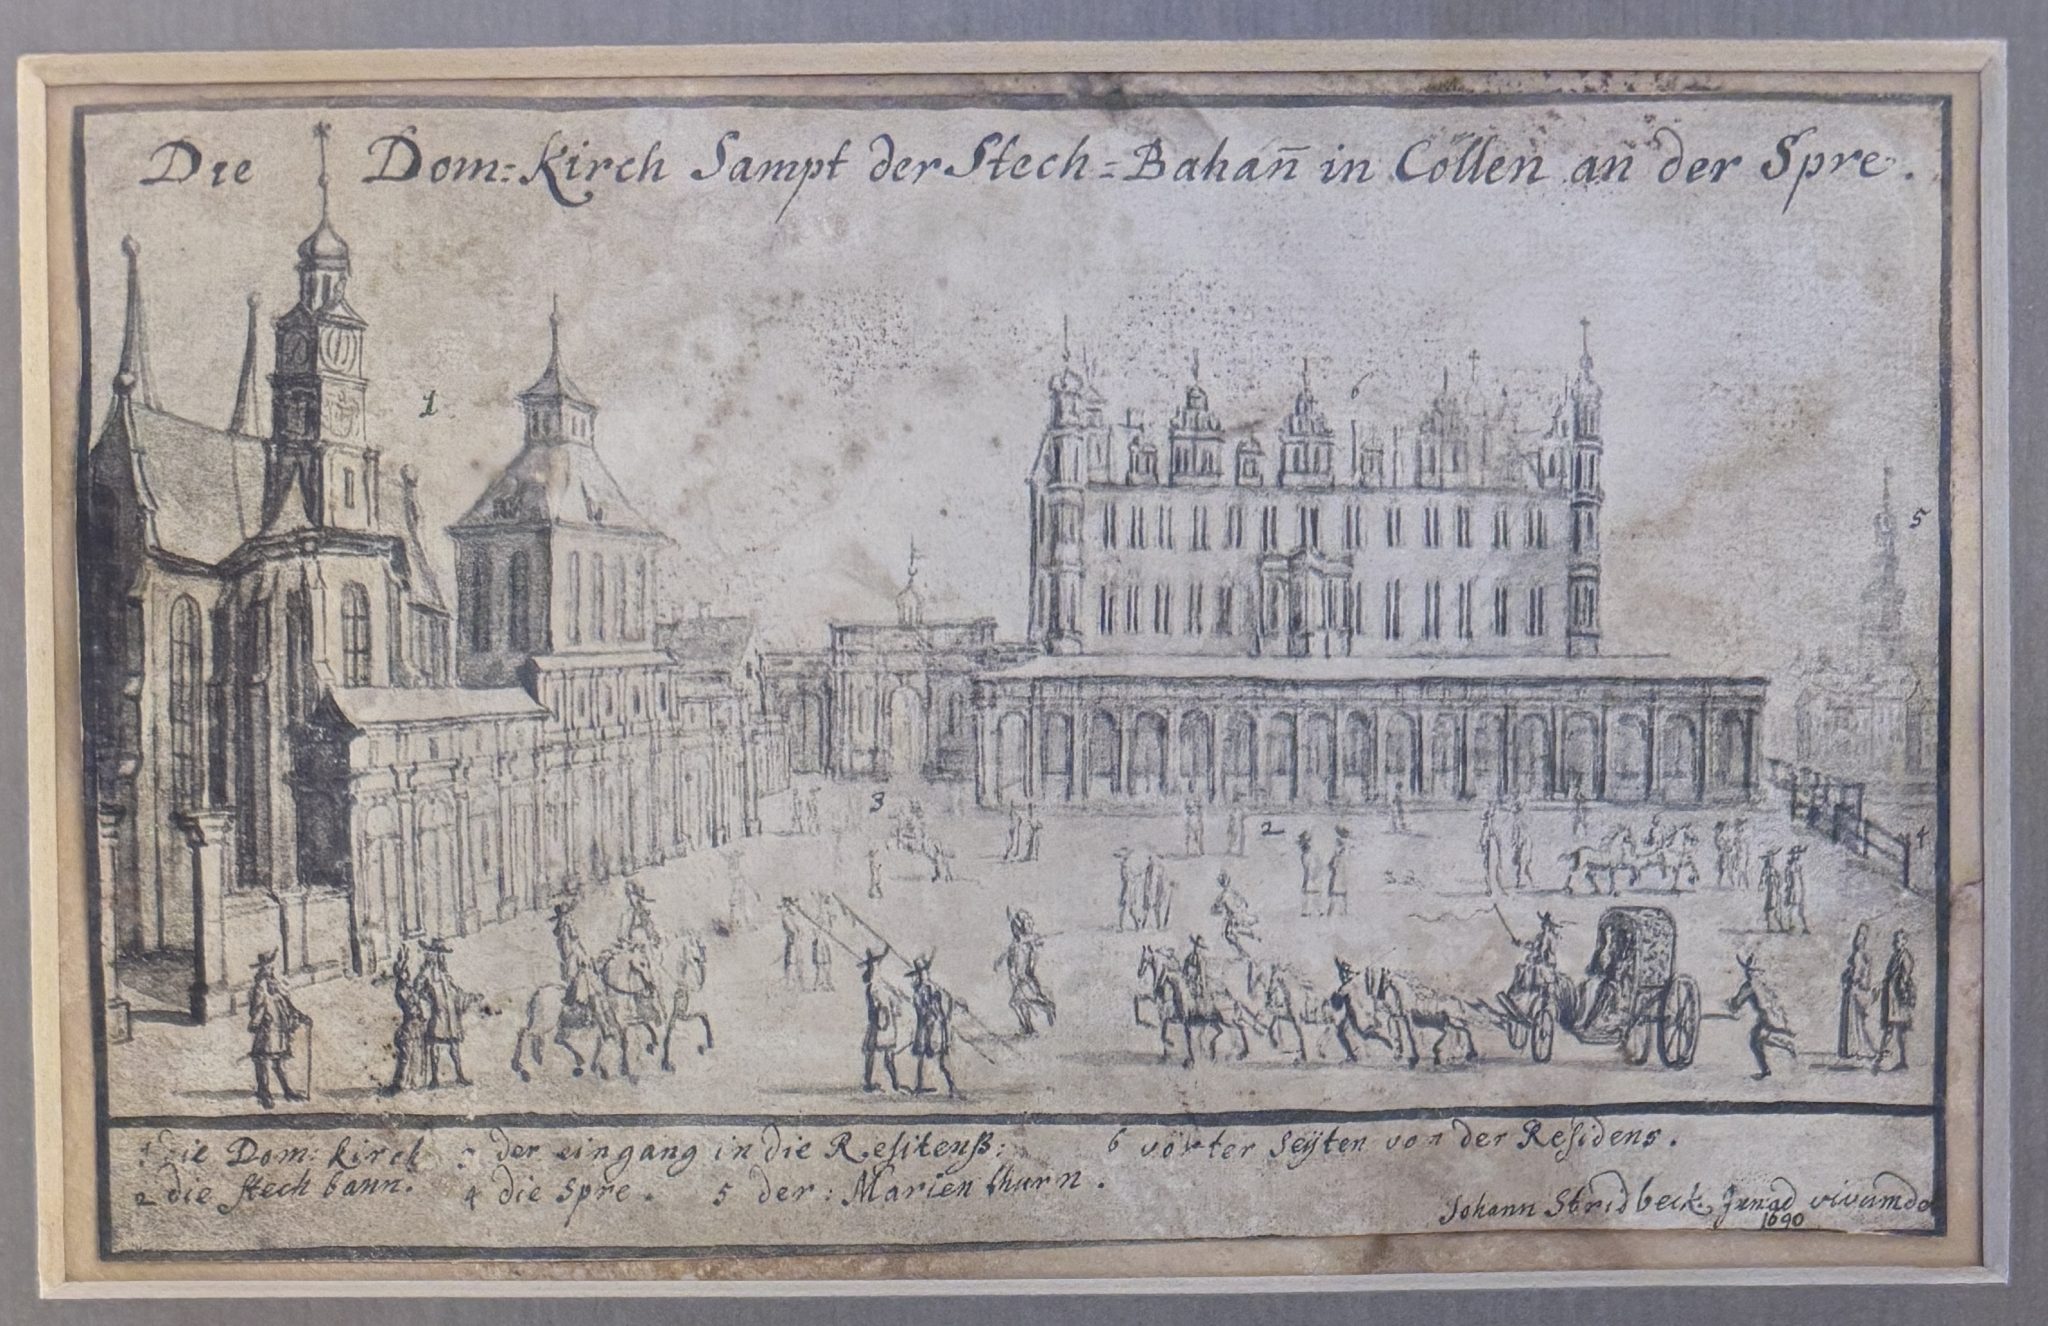 Die Dom=Kirch Sampt der Stech=Bahañ in Cöllen an der Spre.
1
6
5
3
2
4
1 die Dom: kirch 3 der eingang in die Resitenß: 6 vörter seÿten von der Residens.
2 die stech bann. 4 die spre. 5 der: Marien thurn.
Johann Stridbeck Jun ad vivum
1690